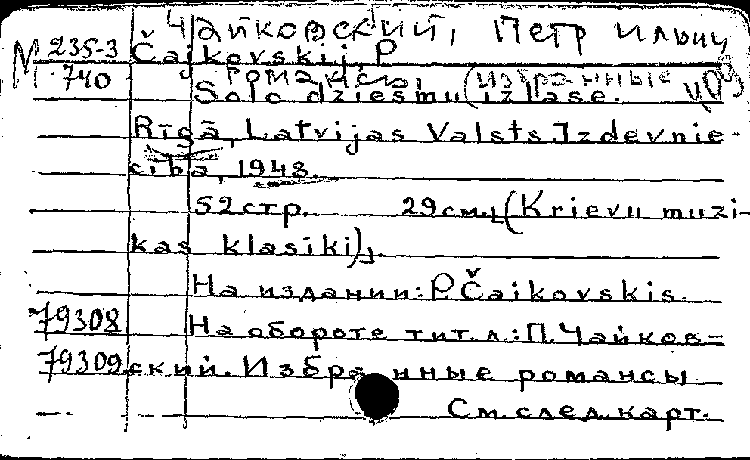 Чайковский, Петр Ильич
М 235-3 Čajkovskij, P
740 романсы, (избранные
Solo dziesmu izlase.
Rīgā, Latvijas Valsts Izdevnie-
cība, 1948.
52 стр. 29 см. (Krievu muzi-
kas klasiki).
На издании: P. Čaikovskis.
79308 На обороте тит. л.: П. Чайков-
79309 ский. Избранные романсы
См. след. карт.